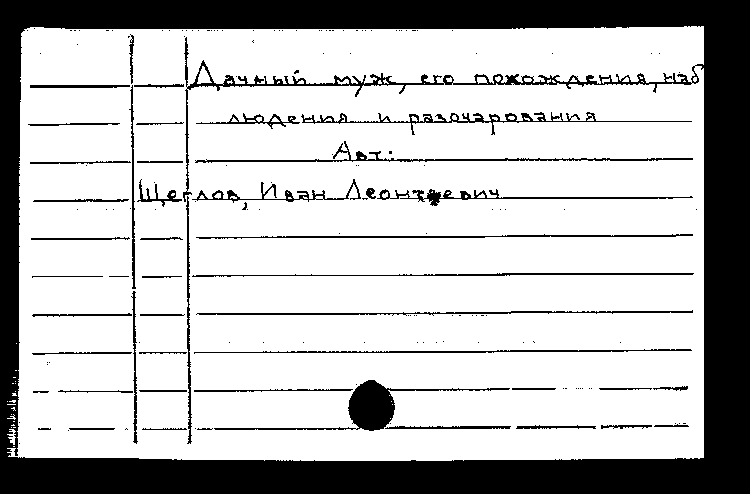 Дачный муж, его похождения, наб
людения и разочарования
Авт:
Щеглов, Иван Леонтьевич